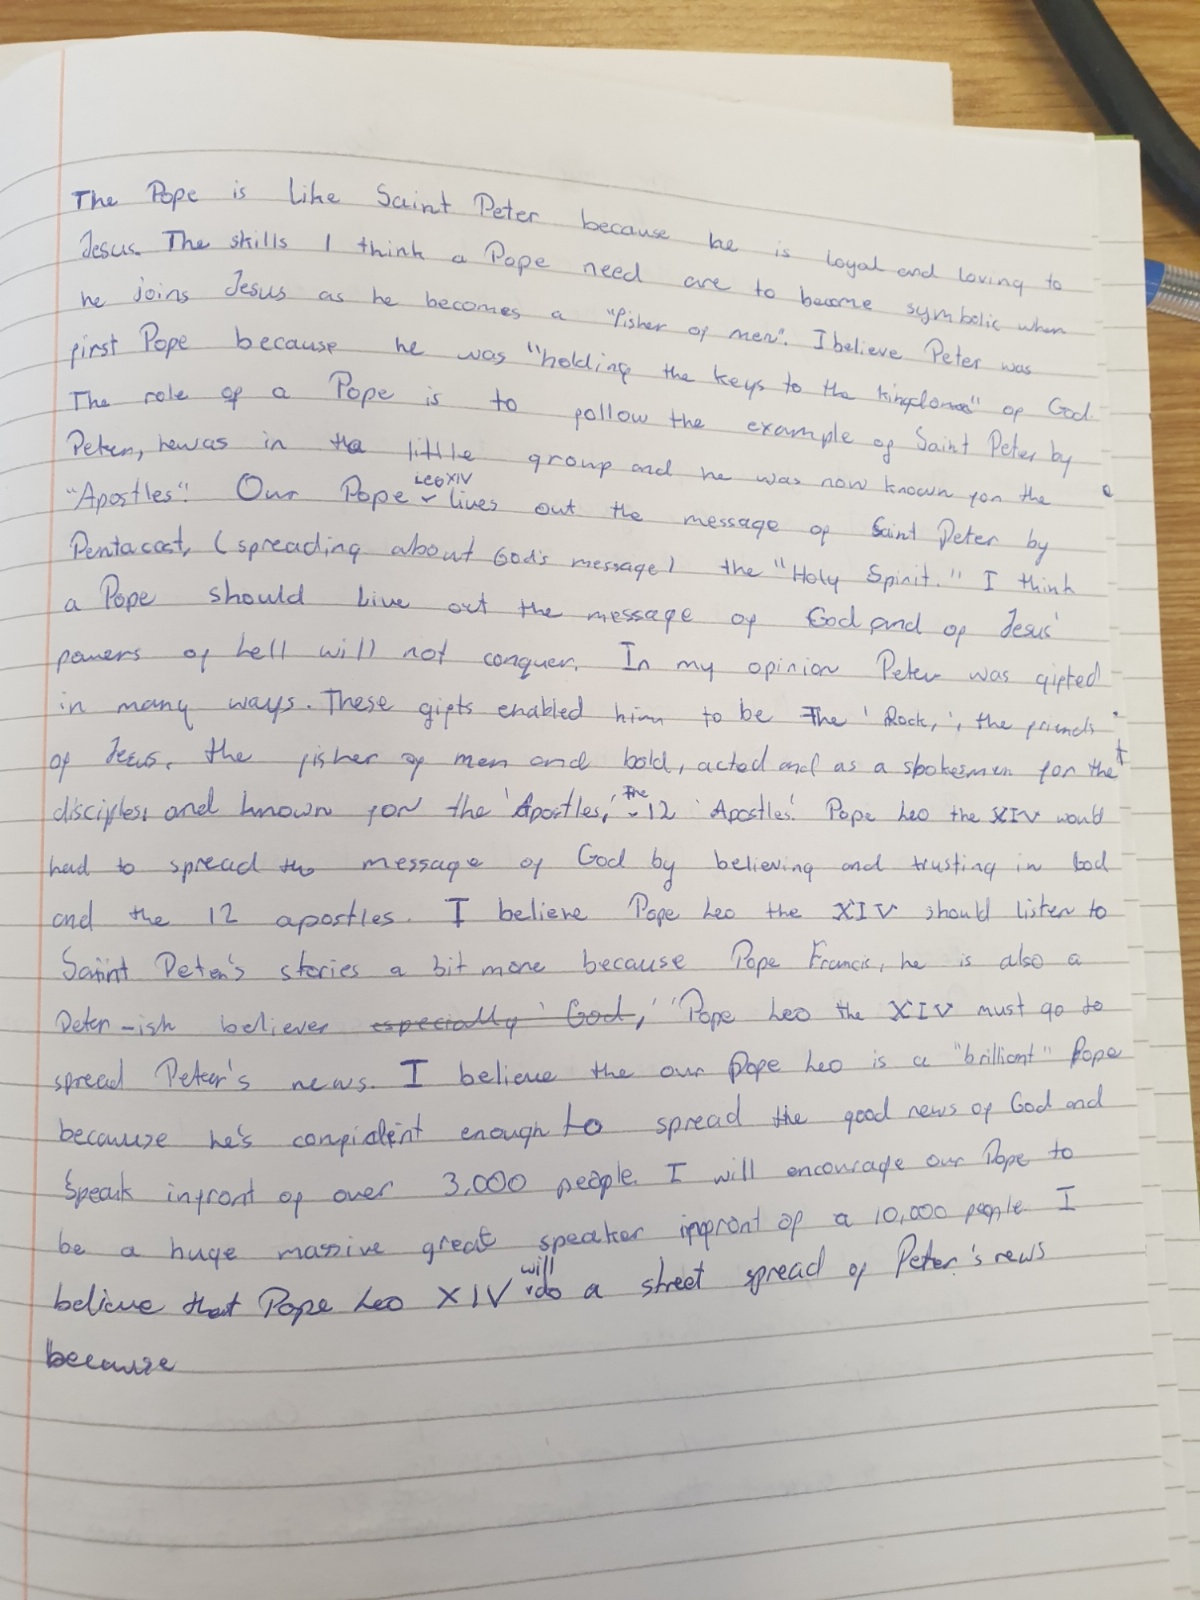 The Pope is like Saint Peter because he is loyal and loving to
Jesus. The skills I think a Pope need are to become symbolic when
he joins Jesus as he becomes a "fisher of men". I believe Peter was
first Pope because he was "holding the keys to the kingdome" of God.
The role of a Pope is to follow the example of Saint Peter by
Peter, he was in the little group and he was now known for the
"Apostles". Our Pope Leo XIV lives out the message of Saint Peter by
Pentacost, (spreading about God's message) the "Holy Spirit." I think
a Pope should live out the message of God and of Jesus'
powers of hell will not conquer. In my opinion Peter was gifted
in many ways. These gifts enabled him to be The 'Rock,', the friends
of Jesus, the fisher of men and bold, acted and as a spokesmen for the
disciples, and known for the 'Apostles,' The 12 'Apostles'. Pope Leo the XIV would
had to spread the message of God by believing and trusting in God
and the 12 apostles. I believe Pope Leo the XIV should listen to
Saint Peter's stories a bit more because Pope Francis, he is also a
Peter-ish believer especially 'God,' 'Pope Leo the XIV must go to
spread Peter's news. I believe the our Pope Leo is a "brilliant" Pope
because he's confident enough to spread the good news of God and
Speak infront of over 3,000 people. I will encourage our Pope to
be a huge massive great speaker infront of a 10,000 people. I
believe that Pope Leo XIV will do a street spread of Peter's news
because